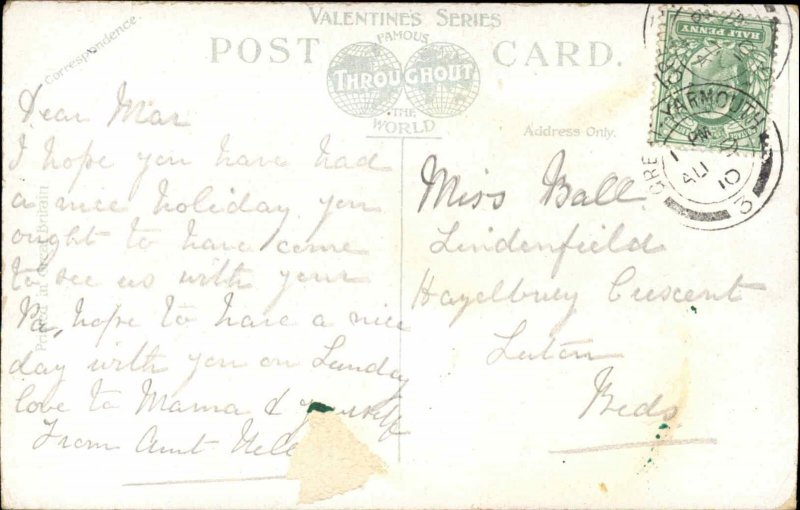 VALENTINE'S SERIES
FAMOUS
POST CARD.
THROUGHOUT
THE
WORLD
Correspondence.
Address Only.
Printed in Great Britain
HALF PENNY
GREAT YARMOUTH
PM
AU
10
Dear Mar
I hope you have had
a nice holiday you
ought to have come
to see us with your
Pa, hope to have a nice
day with you on Sunday
love to Mama & yourself
From Aunt Nell
Miss Ball
Lindenfield
Hazelbury Crescent
Luton
Beds